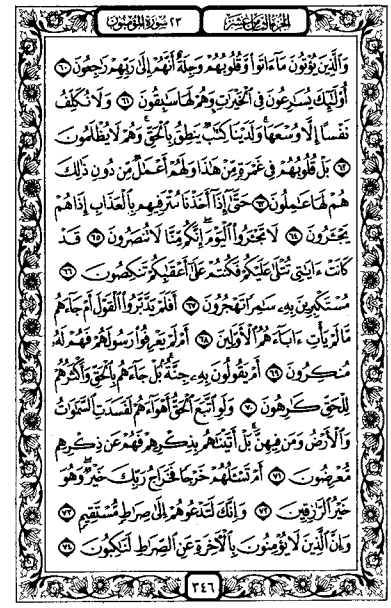 الجزء الثامن عشر ٢٣ سورة المؤمنون
وَالَّذِينَ يُؤْتُونَ مَآ ءَاتَوا۟ وَّقُلُوبُهُمْ وَجِلَةٌ أَنَّهُمْ إِلَىٰ رَبِّهِمْ رَٰجِعُونَ ٦٠
أُو۟لَٰٓئِكَ يُسَٰرِعُونَ فِى ٱلْخَيْرَٰتِ وَهُمْ لَهَا سَٰبِقُونَ ٦١ وَلَا نُكَلِّفُ
نَفْسًا إِلَّا وُسْعَهَا وَلَدَيْنَا كِتَٰبٌ يَنطِقُ بِٱلْحَقِّ وَهُمْ لَا يُظْلَمُونَ
٦٢ بَلْ قُلُوبُهُمْ فِى غَمْرَةٍ مِّنْ هَٰذَا وَلَهُمْ أَعْمَٰلٌ مِّن دُونِ ذَٰلِكَ
هُمْ لَهَا عَٰمِلُونَ ٦٣ حَتَّىٰٓ إِذَآ أَخَذْنَا مُتْرَفِيهِم بِٱلْعَذَابِ إِذَا هُمْ
يَجْـَٔرُونَ ٦٤ لَا تَجْـَٔرُوا۟ ٱلْيَوْمَ إِنَّكُم مِّنَّا لَا تُنصَرُونَ ٦٥ قَدْ
كَانَتْ ءَايَٰتِى تُتْلَىٰ عَلَيْكُمْ فَكُنتُمْ عَلَىٰٓ أَعْقَٰبِكُمْ تَنكِصُونَ ٦٦
مُسْتَكْبِرِينَ بِهِۦ سَٰمِرًا تَهْجُرُونَ ٦٧ أَفَلَمْ يَدَّبَّرُوا۟ ٱلْقَوْلَ أَمْ جَآءَهُم
مَّا لَمْ يَأْتِ ءَابَآءَهُمُ ٱلْأَوَّلِينَ ٦٨ أَمْ لَمْ يَعْرِفُوا۟ رَسُولَهُمْ فَهُمْ لَهُۥ
مُنكِرُونَ ٦٩ أَمْ يَقُولُونَ بِهِۦ جِنَّةٌۢ بَلْ جَآءَهُم بِٱلْحَقِّ وَأَكْثَرُهُمْ
لِلْحَقِّ كَٰرِهُونَ ٧٠ وَلَوِ ٱتَّبَعَ ٱلْحَقُّ أَهْوَآءَهُمْ لَفَسَدَتِ ٱلسَّمَٰوَٰتُ
وَٱلْأَرْضُ وَمَن فِيهِنَّ بَلْ أَتَيْنَٰهُم بِذِكْرِهِمْ فَهُمْ عَن ذِكْرِهِم
مُّعْرِضُونَ ٧١ أَمْ تَسْـَٔلُهُمْ خَرْجًا فَخَرَاجُ رَبِّكَ خَيْرٌ وَهُوَ
خَيْرُ ٱلرَّٰزِقِينَ ٧٢ وَإِنَّكَ لَتَدْعُوهُمْ إِلَىٰ صِرَٰطٍ مُّسْتَقِيمٍ ٧٣
وَإِنَّ ٱلَّذِينَ لَا يُؤْمِنُونَ بِٱلْـَٔاخِرَةِ عَنِ ٱلصِّرَٰطِ لَنَٰكِبُونَ ٧٤
٣٤٦